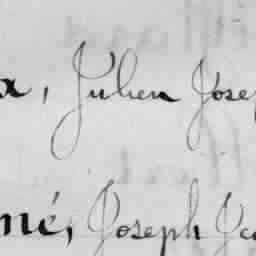 a, Julien Josep
né, Joseph Jea